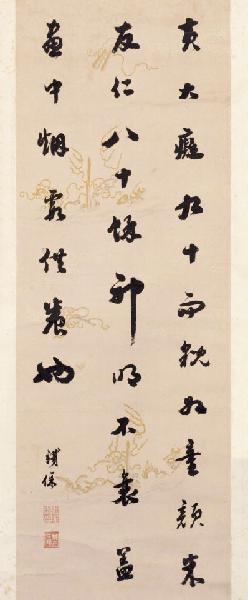 黄大癡九十而貌如童顔米
友仁八十餘神明不衰蓋
畫中烟雲供養也
鐵保